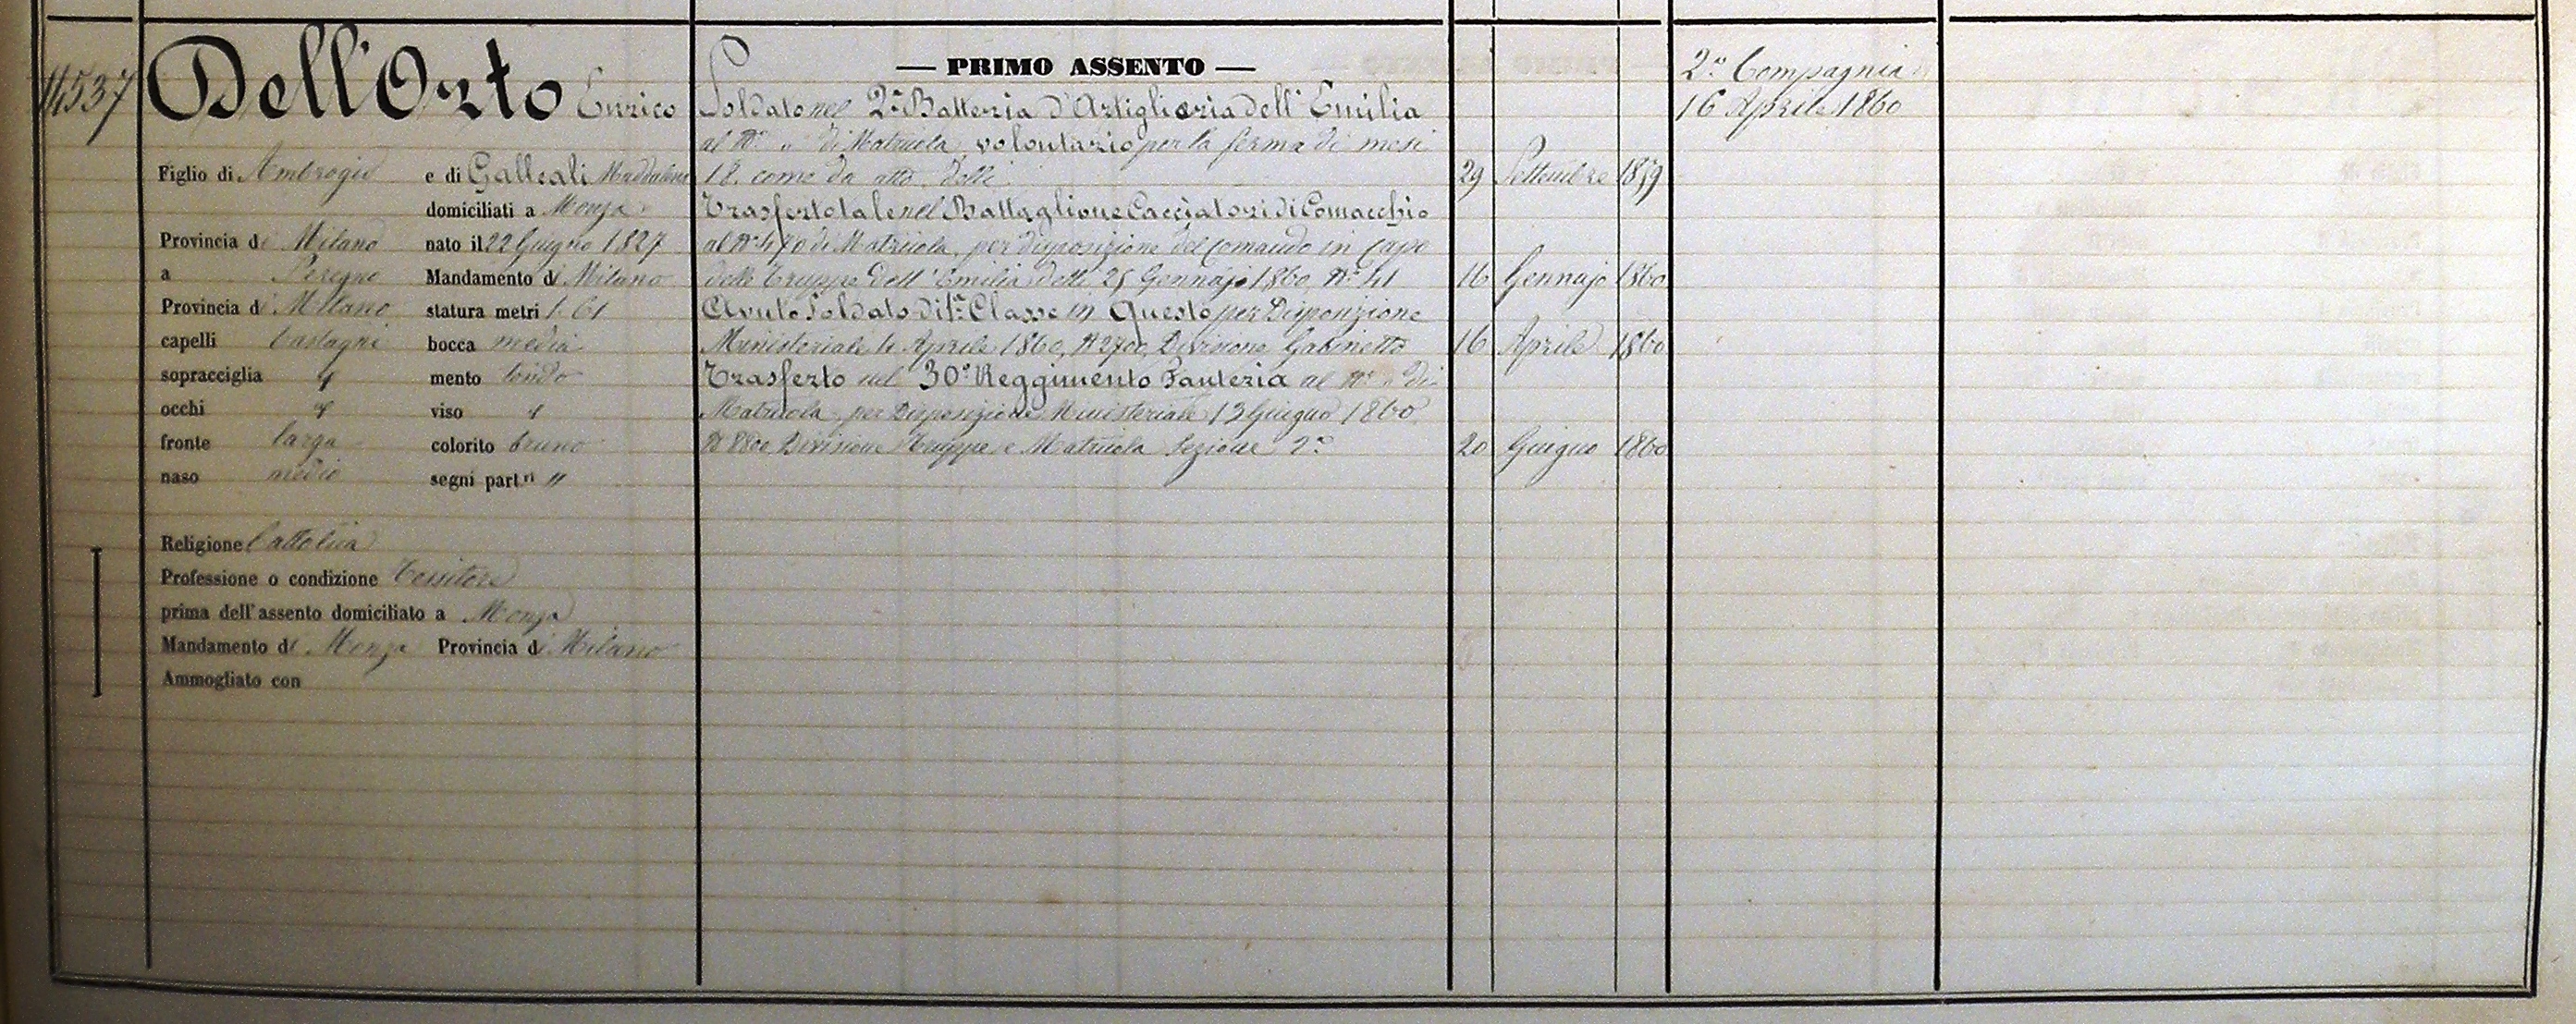 14537
Dell'Orto Enrico
Figlio di Ambrogio e di Galleali Maddalena
domiciliati a Monza
Provincia di Milano nato il 22 Giugno 1827
a Peregno Mandamento di Milano
Provincia di Milano statura metri 1.61
capelli castagni bocca media
sopracciglia " mento tondo
occhi " viso "
fronte larga colorito bruno
naso medio segni part.ri "
Religione Cattolica
Professione o condizione Tessitore
prima dell'assento domiciliato a Monza
Mandamento di Monza Provincia di Milano
Ammogliato con
— PRIMO ASSENTO —
Soldato nel 2a Batteria d'Artiglieria dell'Emilia
al No " di Matricola, volontario per la ferma di mesi
18. come da atto delli 29 Settembre 1859
Trasferto tale nel Battaglione Cacciatori di Comacchio
al No 470 di Matricola, per disposizione del Comando in Capo
delle Truppe dell'Emilia delli 25 Gennajo 1860 No 41 16 Gennajo 1860
Avuto Soldato di 1a Classe in Questo per Disposizione
Ministeriale 4 Aprile 1860, N 2700, Divisione Gabinetto 16 Aprile 1860
Trasferto nel 30o Reggimento Fanteria al No " di
Matricola per Disposizione Ministeriale 13 Giugno 1860
N 8800 Divisione Truppe e Matricola Sezione 2a 20 Giugno 1860
2a Compagnia
16 Aprile 1860